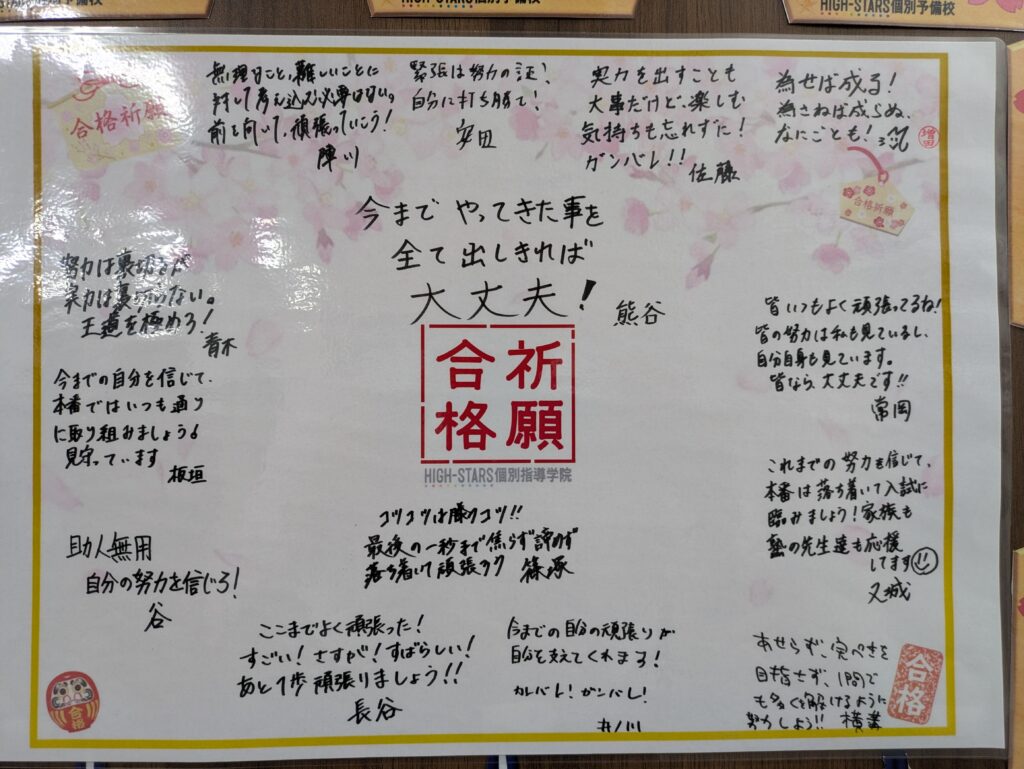 HIGH-STARS個別予備校
HIGH-STARS個別予備校
合格祈願
無理なこと、難しいことに
対して考え込む必要はない。
前を向いて、頑張っていこう!
陣川
緊張は努力の証!
自分に打ち勝て!
安田
実力を出すことも
大事だけど、楽しむ
気持ちも忘れずに!
ガンバレ!!
佐藤
為せば成る!
為さねば成らぬ、
なにごとも!
増田
合格祈願
今まで やってきた事を
全て出しきれば
大丈夫!
熊谷
努力は裏切るが
実力は裏切らない。
王道を極めろ!
青木
今までの自分を信じて、
本番ではいつも通り
に取り組みましょう。
見守っています
板垣
皆いつもよく頑張ってるね!
皆の努力は私も見ているし、
自分自身も見ています。
皆なら大丈夫です!!
常岡
合格
祈願
HIGH-STARS個別指導学院
これまでの努力を信じて、
本番は落ち着いて入試に
臨みましょう!家族も
塾の先生達も応援
してます
又城
コツコツは勝つコツ!!
最後の一秒まで焦らず諦めず
落ち着いて頑張ろう
篠塚
助人無用
自分の努力を信じろ!
谷
ここまでよく頑張った!
すごい!さすが!すばらしい!
あと1歩頑張りましょう!!
長谷
今までの自分の頑張りが
自分を支えてくれます!
ガンバレ!ガンバレ!
井ノ川
あせらず、完ぺきを
目指せず、1問で
も多くを解けるように
努力しよう!!
合格
合格